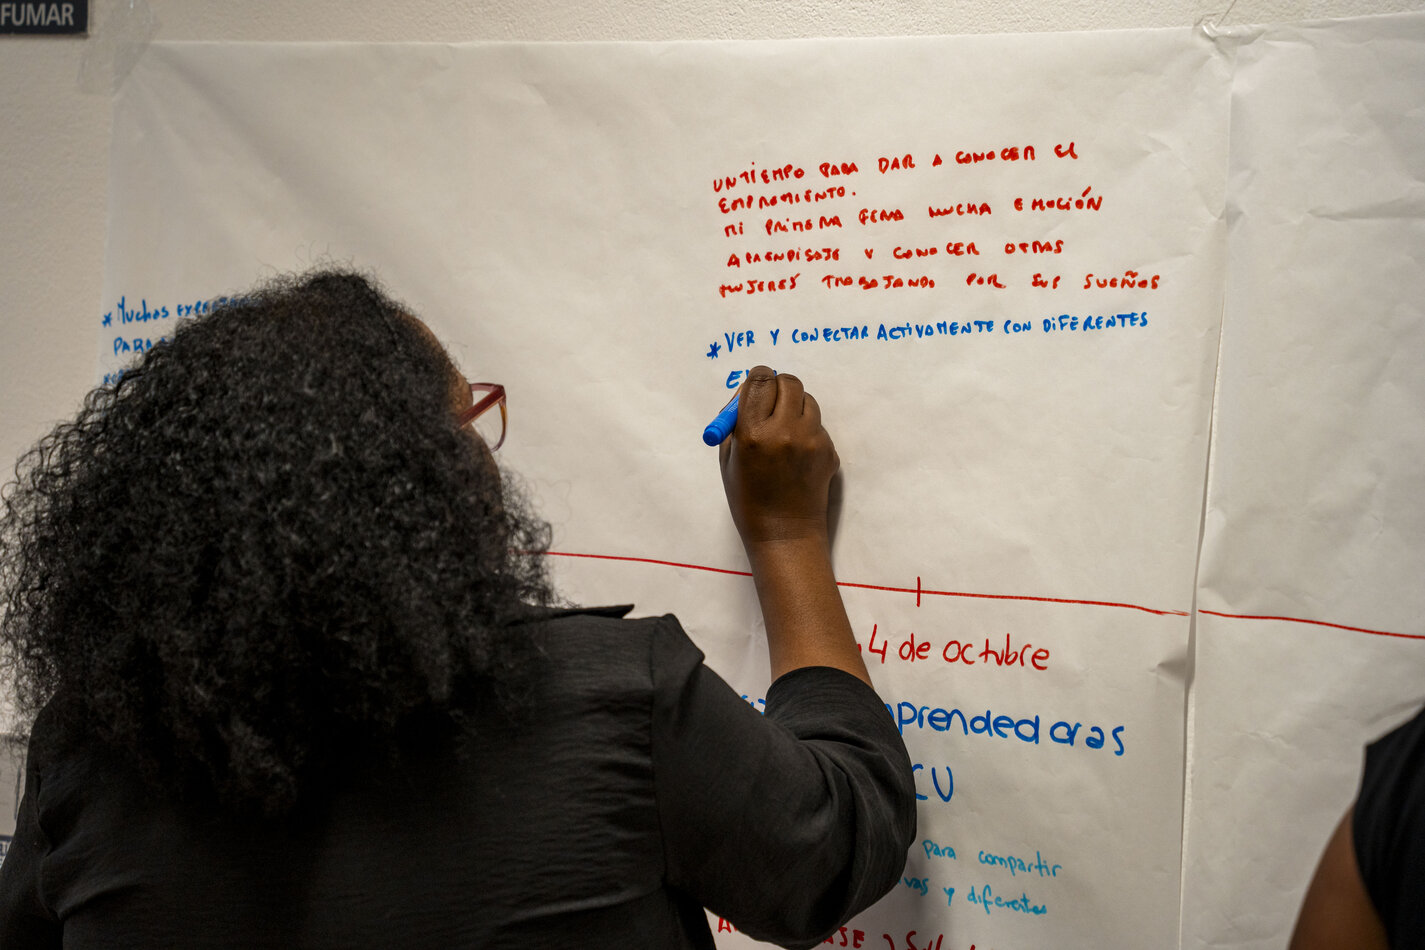 FUMAR
UN TIEMPO PARA DAR A CONOCER EL
EMPROMIENTO.
MI PRIMERA FERIA MUCHA EMOCIÓN
APRENDISAJE Y CONOCER OTRAS
MUJERES TRABAJANDO POR SUS SUEÑOS
* Muchas
PARA
* VER Y CONECTAR ACTIVAMENTE CON DIFERENTES
4 de octubre
mprendedoras
CU
para compartir
vas y diferentes